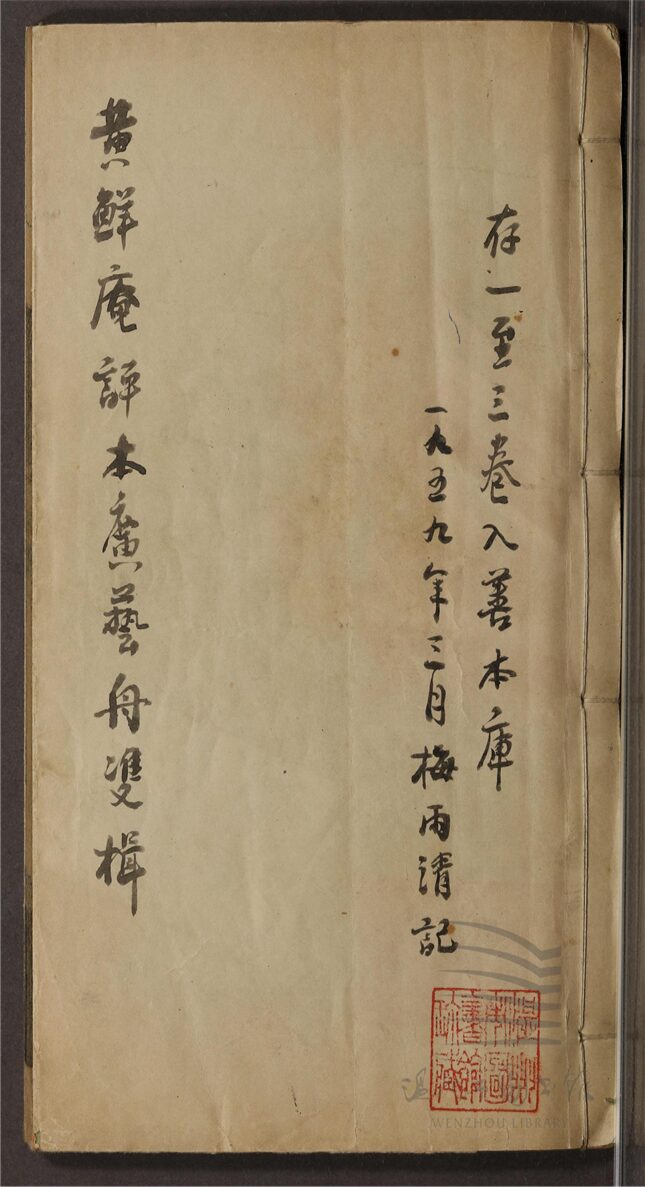 存一至三卷入善本庫
一九五九年三月梅雨清記
黄鮮庵評本廣藝舟雙楫
溫州市圖書館珍藏
WENZHOU LIBRARY